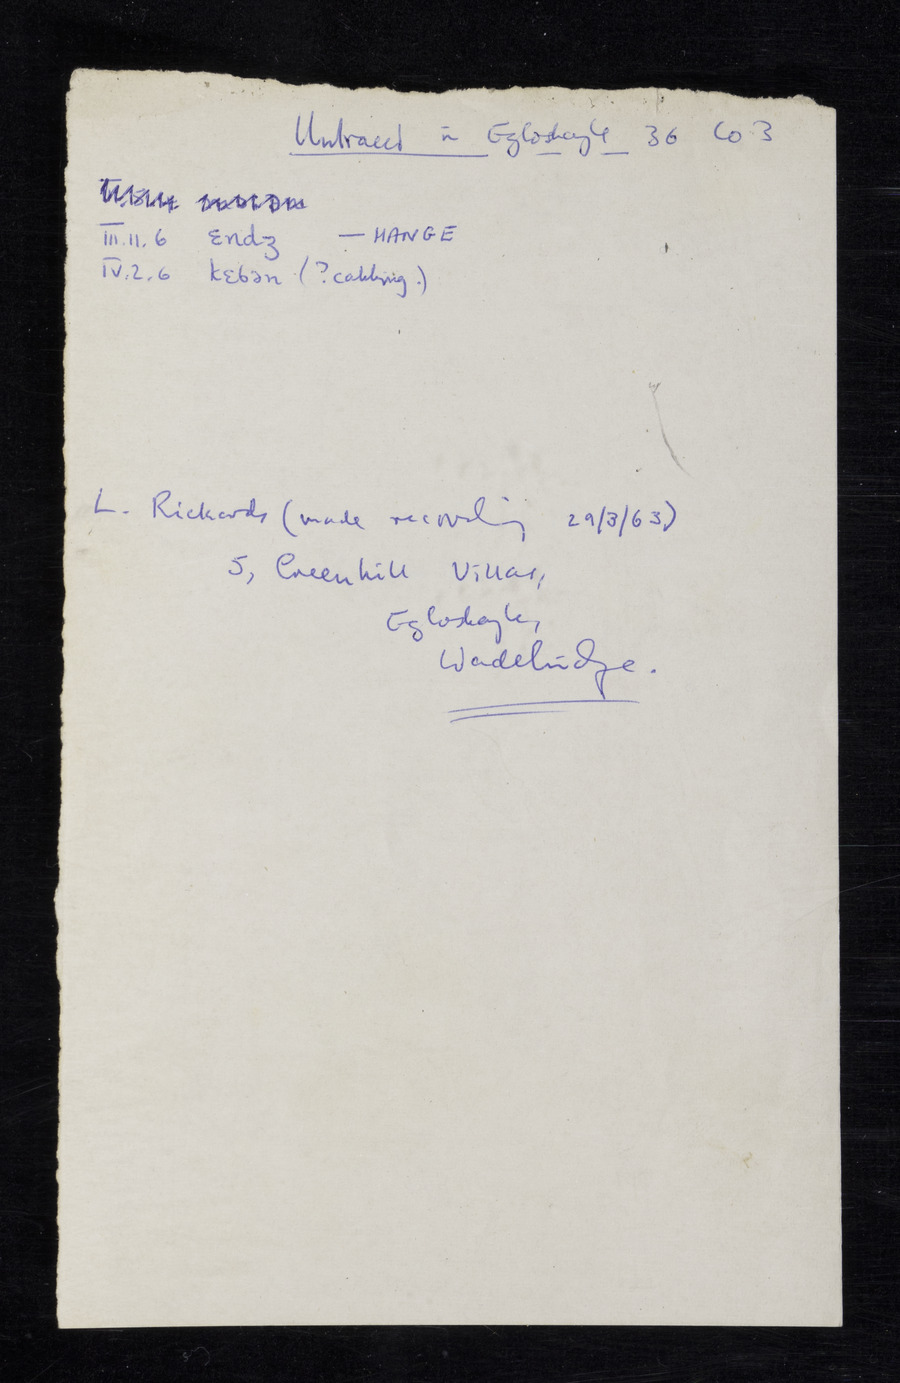 Untraced in Egloshayle 36 Co 3
III.11.6 ɛndʒ — HANGE
IV.2.6 kɛbən (?cabbing.)
L. Rickards (made recording 29/3/63)
5, Greenhill Villas,
Egloshayle,
Wadebridge.